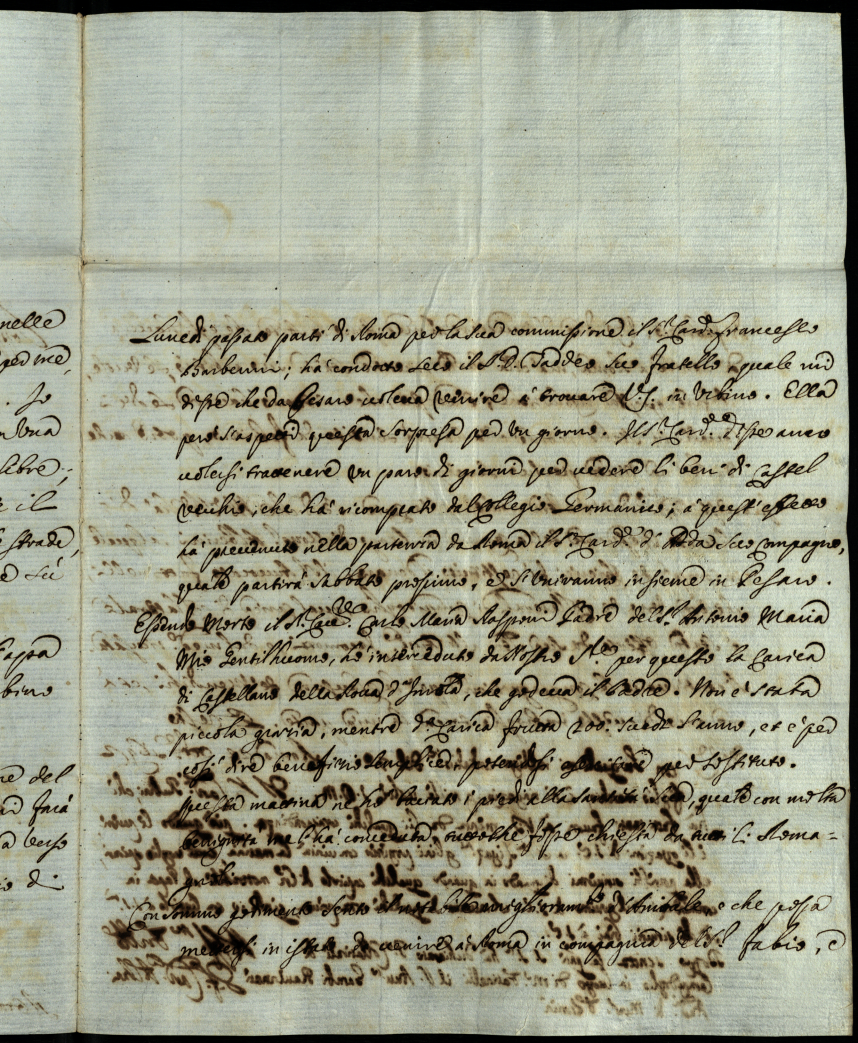 nelle
per me,
. Jo
n una
libre;
e il
strade,
e sù
Papa
bino
ne del
farà
verso
o di
Lunedi passato partì di Roma per la sua commissione il Sr. Card. Francesco
Barberini; ha condotto seco il S.D. Taddeo suo fratello, quale mi
disse che da Pesaro voleva venire à trovare V.S. in Urbino. Ella
però s'aspetti questa sorpresa per un giorno. Il Sr. Card. d'Este anco
volersi trattenere un paro di giorni per vedere li beni di Castel
vecchio, che ha ricomprato dal Collegio Germanico; à quest'effetto
ha prevenuto nella partenza da Roma il Sr. Card. d'Adda suo Compagno,
quale partirà Sabbato prossimo, e si uniranno insieme in Pesaro.
Essendo Morto il Sr. Cav. Carlo Maria Rasponi Padre del Sr. Antonio Maria
Mio Gentilhuomo, hò interceduto da Nostro Sre. per questo la Carica
di Castellano della Rocca d'Imola, che godeva il Padre. Non è stata
piccola grazia, mentre da Carica frutta 200. scudi l'anno, et è per
così dire beneficio semplice, potendosi esercitare per sostituto.
Questa mattina ne hò baciato i piedi alla Santità Sua, quale con molta
benignità me l'ha conceduta, fosse chiesta da tutti li Roma-
gnoli.
Con sommo godimento sento il notabile miglioramto. d'Annibale, e che possa
mettersi in istato di venire à Roma in compagnia del Sr. Fabio, e